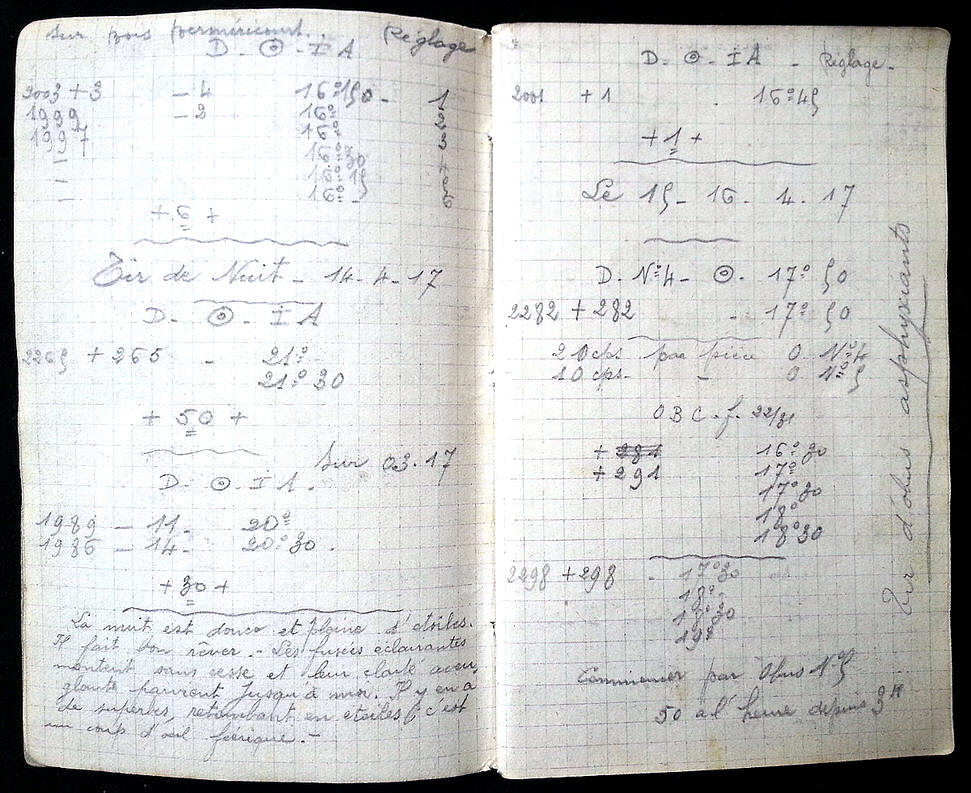 Sur bois Réglage
D. ⊙. IA
2003 + 3 - 4 16°.150 - 1
1999 - 2 16° 2
1997 16° 3
- 16°30
- 16°.15 5
- 16°. 6
+ 6 +
Tir de Nuit - 14. 4. 17
D. ⊙. IA
2265 + 265 - 21°.
21°.30
+ 50 +
Sur 03.17
D. ⊙. IA.
1989 - 11. 20°
1986 - 14. 20°.30.
+ 30 +
La nuit est douce et pleine d'étoiles.
Il fait bon rêver. - Les fusées éclairantes
montent sans cesse et leur clarté aveu
glante parvient jusqu'à moi. Il y en a
de superbes, retombant en étoiles, c'est
un coup d'œil féerique. -
D. ⊙. IA - Réglage.
2001 + 1 . 16°45
+ 1 +
Le 15 - 16. 4. 17
D. N°4 - ⊙. 17° 50
2282 + 282 - 17° 50
20 cps par pièce O. N°4
10 cps. - O. N°5
OBC. f. 22/31
+ 281 16°.30
+ 291 17°
17°30
18°
18°30
2298 + 298 - 17°30
18°.
18°30
19°
Commencer par Obus N°5
50 à l'heure depuis 3H
Tir d'obus asphyxiants